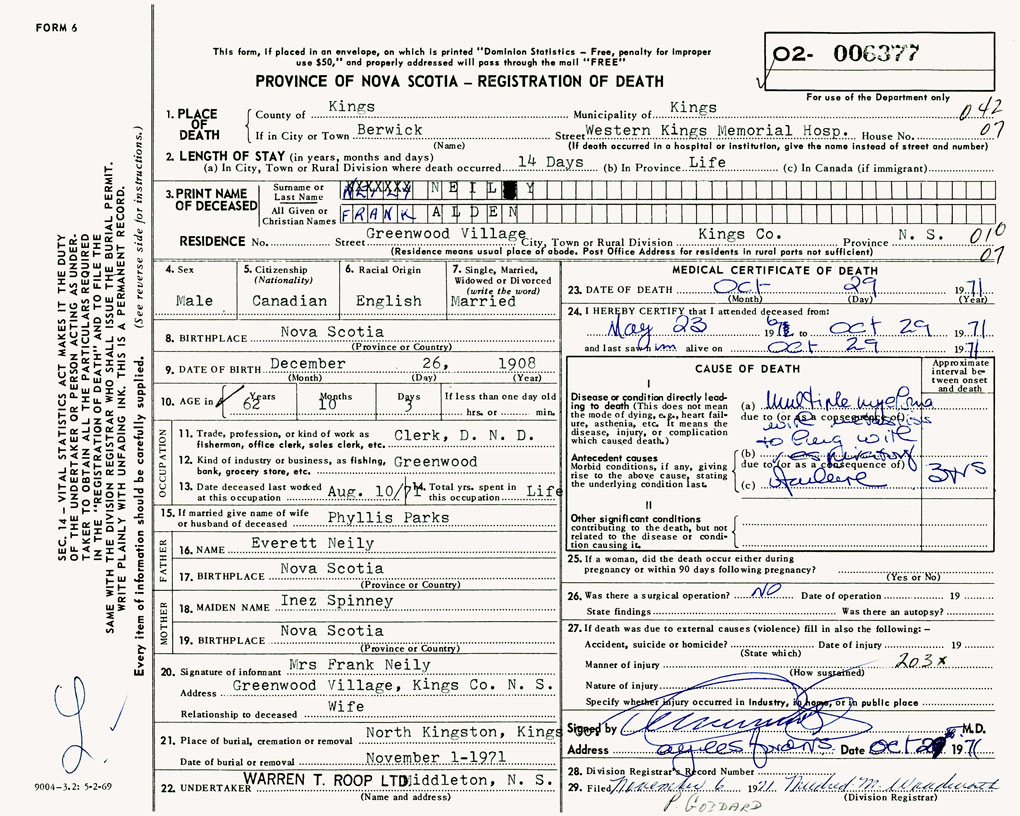 FORM 6
This form, if placed in an envelope, on which is printed "Dominion Statistics – Free, penalty for improper
use $50," and properly addressed will pass through the mail "FREE"
PROVINCE OF NOVA SCOTIA – REGISTRATION OF DEATH
02- 006377
For use of the Department only
1. PLACE OF DEATH
County of Kings Municipality of Kings 042
If in City or Town Berwick Street Western Kings Memorial Hosp. House No. 07
(Name) (If death occurred in a hospital or institution, give the name instead of street and number)
2. LENGTH OF STAY (in years, months and days)
(a) In City, Town or Rural Division where death occurred 14 Days (b) In Province Life (c) In Canada (if immigrant)
3. PRINT NAME OF DECEASED
Surname or Last Name NEILY
All Given or Christian Names FRANK ALDEN
RESIDENCE No. Street Greenwood Village City, Town or Rural Division Kings Co. Province N. S. 010
(Residence means usual place of abode. Post Office Address for residents in rural parts not sufficient) 07
4. Sex
Male
5. Citizenship
(Nationality)
Canadian
6. Racial Origin
English
7. Single, Married,
Widowed or Divorced
(write the word)
Married
8. BIRTHPLACE Nova Scotia
(Province or Country)
9. DATE OF BIRTH December 26, 1908
(Month) (Day) (Year)
10. AGE in Years Months Days If less than one day old
62 10 3 hrs. or min.
OCCUPATION
11. Trade, profession, or kind of work as
fisherman, office clerk, sales clerk, etc. Clerk, D. N. D.
12. Kind of industry or business, as fishing,
bank, grocery store, etc. Greenwood
13. Date deceased last worked
at this occupation Aug. 10/71
14. Total yrs. spent in
this occupation Life
15. If married give name of wife
or husband of deceased Phyllis Parks
FATHER
16. NAME Everett Neily
17. BIRTHPLACE Nova Scotia
(Province or Country)
MOTHER
18. MAIDEN NAME Inez Spinney
19. BIRTHPLACE Nova Scotia
(Province or Country)
20. Signature of informant Mrs Frank Neily
Address Greenwood Village, Kings Co. N. S.
Relationship to deceased Wife
21. Place of burial, cremation or removal North Kingston, Kings Co.
Date of burial or removal November 1-1971
22. UNDERTAKER WARREN T. ROOP LTD Middleton, N. S.
(Name and address)
MEDICAL CERTIFICATE OF DEATH
23. DATE OF DEATH Oct 29 1971
(Month) (Day) (Year)
24. I HEREBY CERTIFY that I attended deceased from:
May 23 19 to Oct 29 1971
and last saw him alive on Oct 29 1971
CAUSE OF DEATH
Approximate
interval be-
tween onset
and death
I
Disease or condition directly lead-
ing to death (This does not mean
the mode of dying, e.g., heart fail-
ure, asthenia, etc. It means the
disease, injury, or complication
which caused death.)
(a) Multiple myeloma
due to (or as a consequence of)
with
to lung with
Antecedent causes
Morbid conditions, if any, giving
rise to the above cause, stating
the underlying condition last.
(b) respiratory
due to (or as a consequence of)
(c) failure
3 yrs
II
Other significant conditions
contributing to the death, but not
related to the disease or condi-
tion causing it.
25. If a woman, did the death occur either during
pregnancy or within 90 days following pregnancy?
(Yes or No)
26. Was there a surgical operation? NO Date of operation 19
State findings Was there an autopsy?
27. If death was due to external causes (violence) fill in also the following: –
Accident, suicide or homicide? Date of injury 19
(State which)
Manner of injury 203x
(How sustained)
Nature of injury
Specify whether injury occurred in industry, in home, or in public place
Signed by M.D.
Address Date Oct 29 1971
28. Division Registrar's Record Number
29. Filed November 6 1971 Mildred M. Woodworth
(Division Registrar)
P. GODDARD
SEC. 14 – VITAL STATISTICS ACT MAKES IT THE DUTY
OF THE UNDERTAKER OR PERSON ACTING AS UNDER-
TAKER TO OBTAIN ALL THE PARTICULARS REQUIRED
IN THE "REGISTRATION OF DEATH" AND TO FILE THE
SAME WITH THE DIVISION REGISTRAR WHO SHALL ISSUE THE BURIAL PERMIT.
WRITE PLAINLY WITH UNFADING INK. THIS IS A PERMANENT RECORD.
Every item of information should be carefully supplied. (See reverse side for instructions.)
9004-3.2: 5-2-69